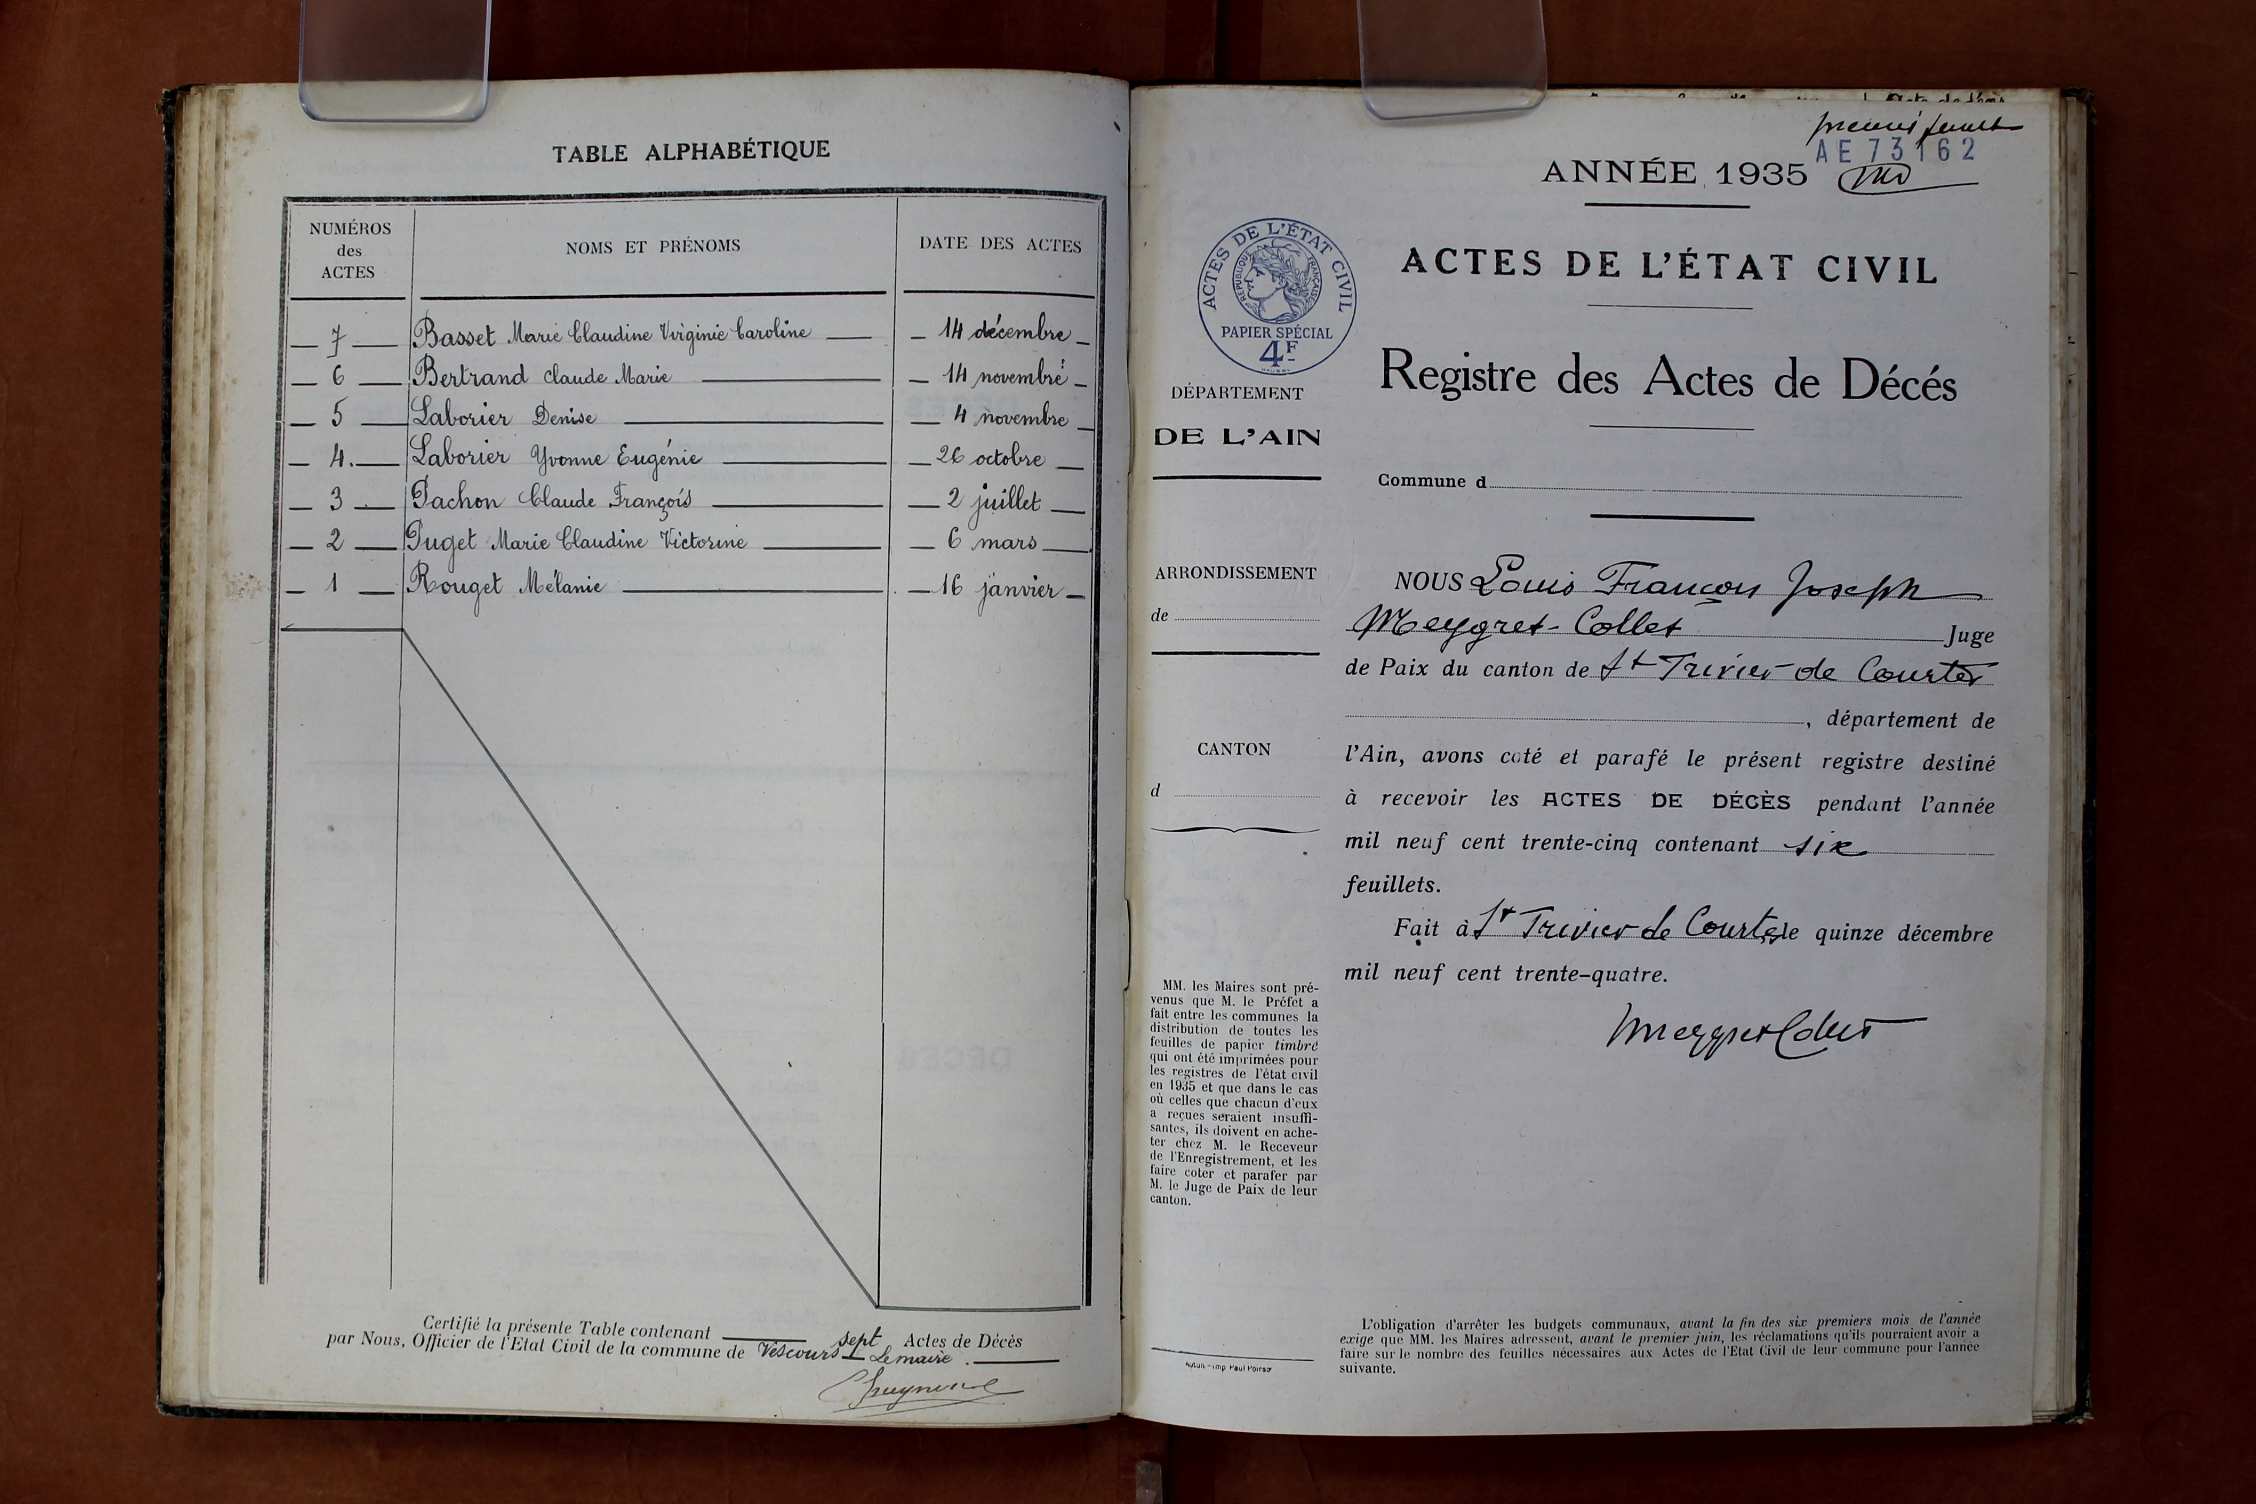 TABLE ALPHABÉTIQUE
NUMÉROS
des
ACTES
NOMS ET PRÉNOMS
DATE DES ACTES
7 Basset Marie Claudine Virginie Caroline 14 décembre
6 Bertrand Claude Marie 14 novembre
5 Laborier Denise 4 novembre
4. Laborier Yvonne Eugénie 26 octobre
3 Pachon Claude François 2 juillet
2 Puget Marie Claudine Victorine 6 mars
1 Rouget Mélanie 16 janvier
Certifié la présente Table contenant sept Actes de Décès
par Nous, Officier de l'Etat Civil de la commune de Vescours Le maire.
premier feuillet
AE 73162
ANNÉE 1935
ACTES DE L'ÉTAT CIVIL
RÉPUBLIQUE FRANÇAISE
PAPIER SPÉCIAL
4F
ACTES DE L'ÉTAT CIVIL
Registre des Actes de Décés
DÉPARTEMENT
DE L'AIN
Commune d
ARRONDISSEMENT
de
CANTON
d
NOUS Louis François Joseph
Meygret-Collet Juge
de Paix du canton de St Trivier-de Courtes
, département de
l'Ain, avons coté et parafé le présent registre destiné
à recevoir les ACTES DE DÉCÈS pendant l'année
mil neuf cent trente-cinq contenant six
feuillets.
Fait à St Trivier de Courtes le quinze décembre
mil neuf cent trente-quatre.
Meygret Collet
MM. les Maires sont pré-
venus que M. le Préfet a
fait entre les communes la
distribution de toutes les
feuilles de papier timbré
qui ont été imprimées pour
les registres de l'état civil
en 1935 et que dans le cas
où celles que chacun d'eux
a reçues seraient insuffi-
santes, ils doivent en ache-
ter chez M. le Receveur
de l'Enregistrement, et les
faire coter et parafer par
M. le Juge de Paix de leur
canton.
L'obligation d'arrêter les budgets communaux, avant la fin des six premiers mois de l'année
exige que MM. les Maires adressent, avant le premier juin, les réclamations qu'ils pourraient avoir a
faire sur le nombre des feuilles nécessaires aux Actes de l'Etat Civil de leur commune pour l'année
suivante.
Autun - Imp Paul Poirso